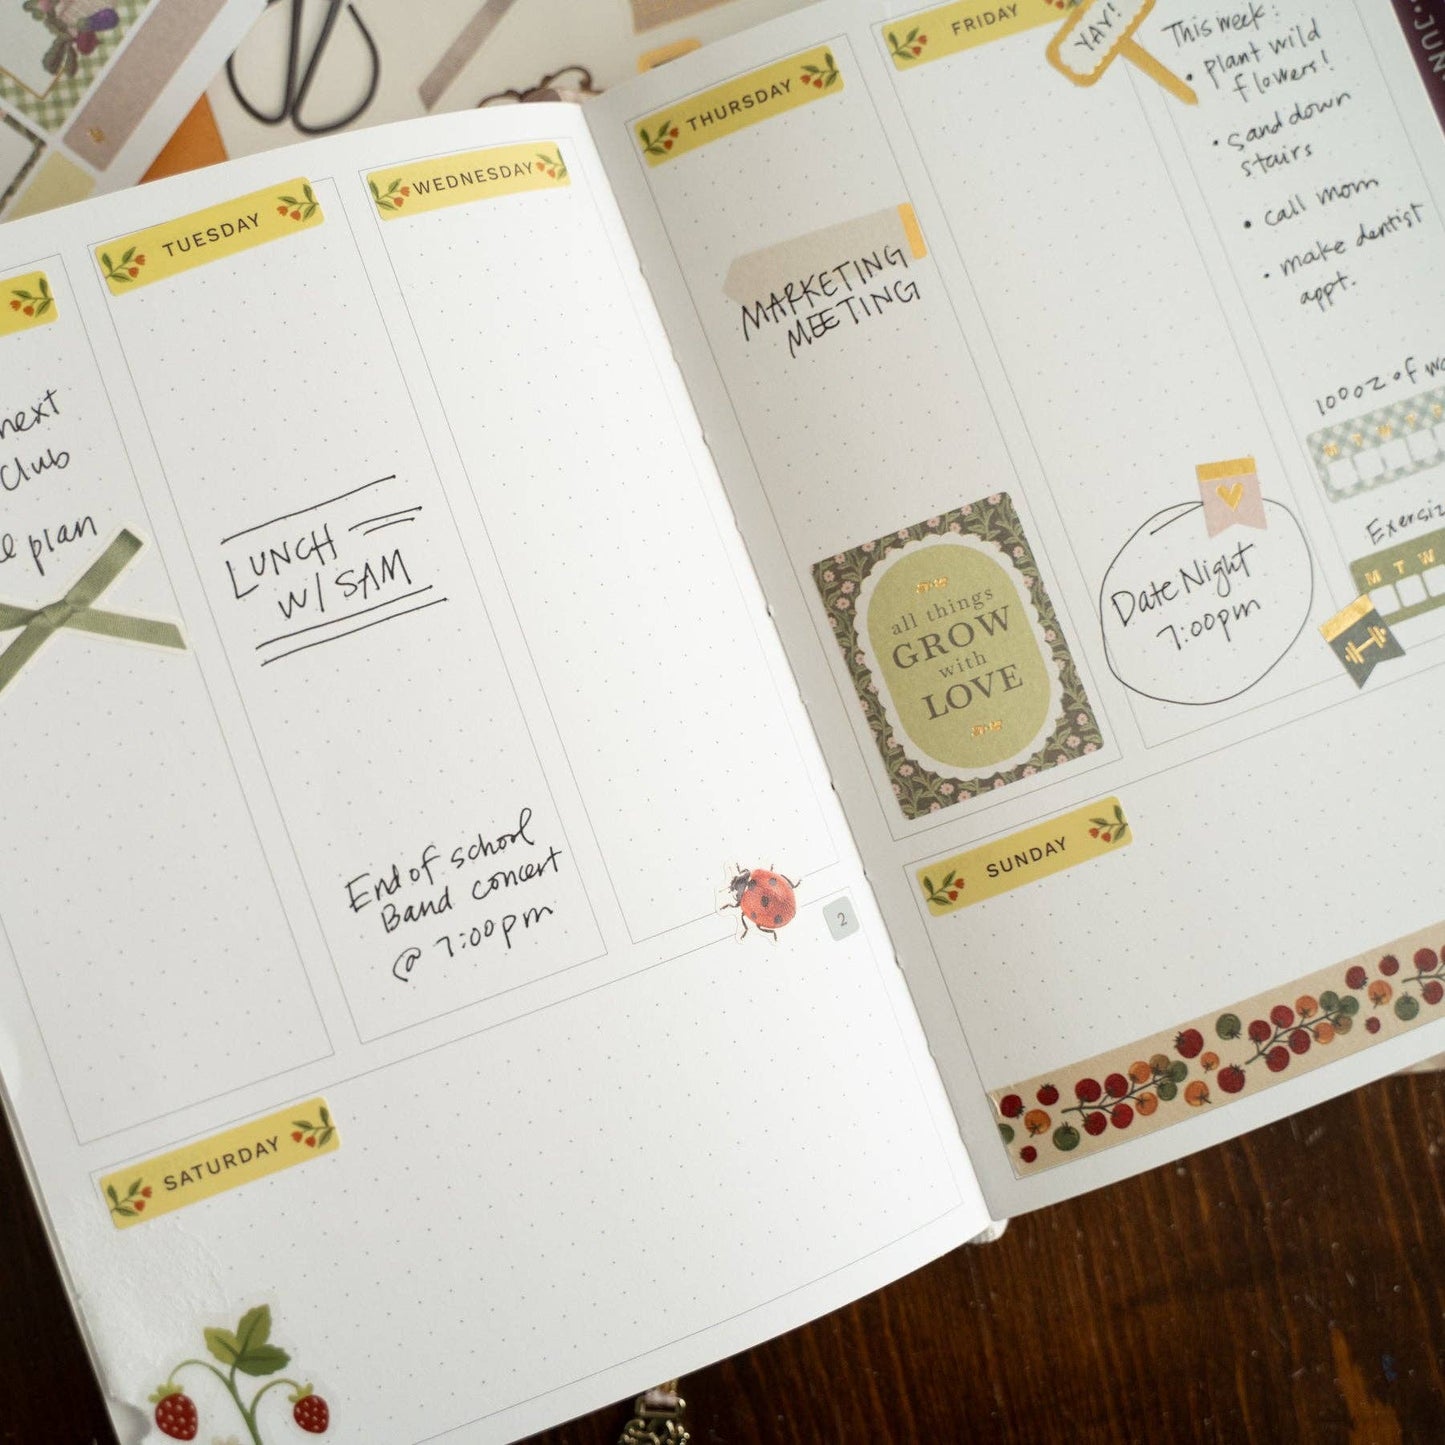 next
club
plan
TUESDAY
LUNCH
W/ SAM
End of school
Band concert
@ 7:00pm
WEDNESDAY
2
SATURDAY
THURSDAY
MARKETING
MEETING
all things
GROW
with
LOVE
FRIDAY
YAY!
Date Night
7:00pm
This week:
• plant wild
flowers!
• sand down
stairs
• call mom
• make dentist
appt.
100oz of wa
M T W T F S
Exersiz
M T W
SUNDAY
JUN